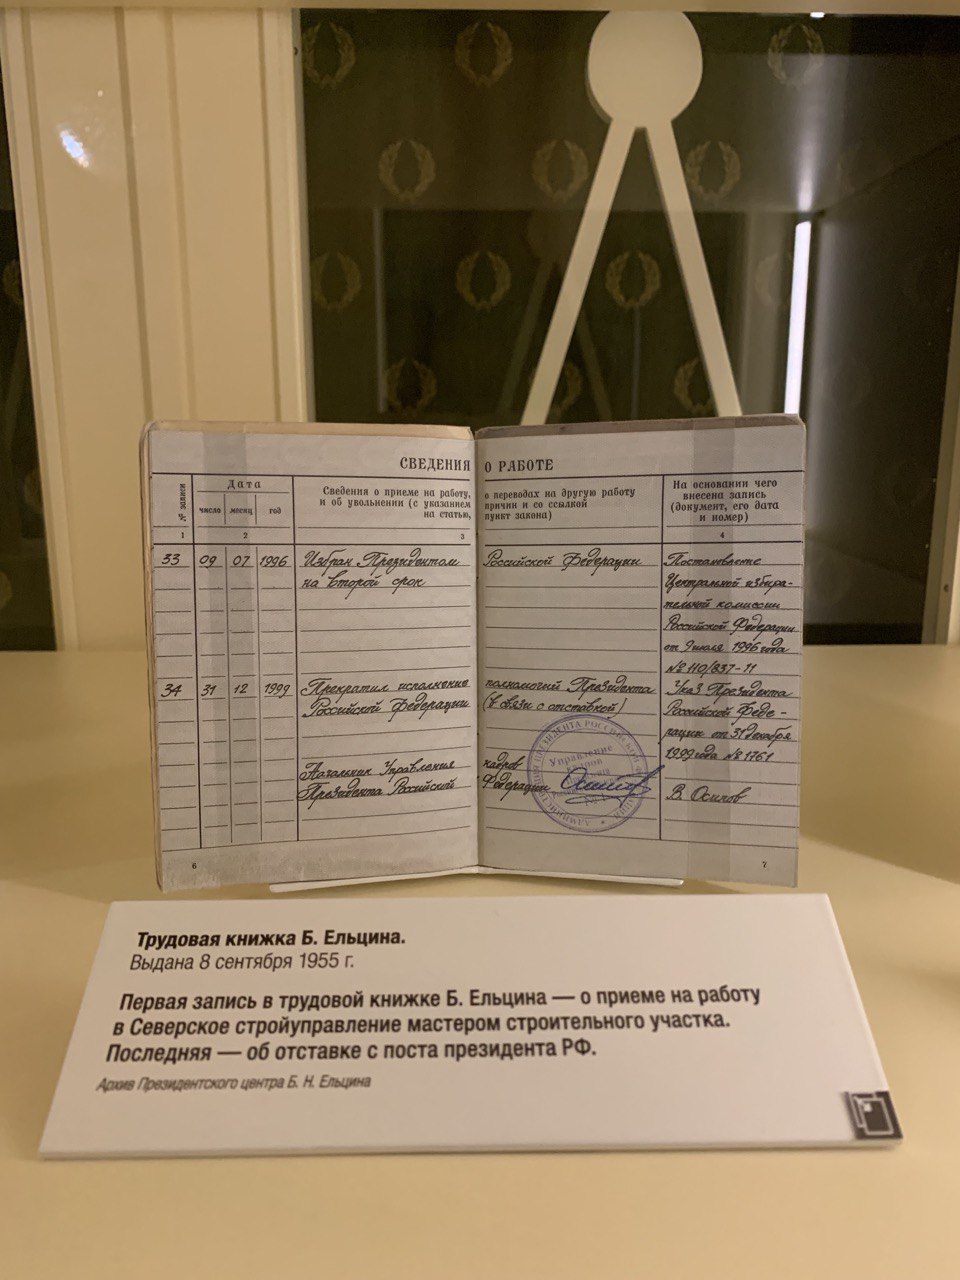 СВЕДЕНИЯ О РАБОТЕ
№ записи
Дата
число месяц год
Сведения о приеме на работу, о переводах на другую работу
и об увольнении (с указанием причин и со ссылкой
на статью, пункт закона)
На основании чего
внесена запись
(документ, его дата
и номер)
1 2 3 4
33 09 07 1996 Избран Президентом Российской Федерации
на второй срок
Постановление
Центральной избира-
тельной комиссии
Российской Федерации
от 9 июля 1996 года
№ 110/837-II
34 31 12 1999 Прекратил исполнение полномочий Президента
Российской Федерации (в связи с отставкой)
Указ Президента
Российской Феде-
рации от 31 декабря
1999 года № 1761
Начальник Управления кадров
Президента Российской Федерации
В. Осипов
Управление
6
7
Трудовая книжка Б. Ельцина.
Выдана 8 сентября 1955 г.
Первая запись в трудовой книжке Б. Ельцина — о приеме на работу
в Северское стройуправление мастером строительного участка.
Последняя — об отставке с поста президента РФ.
Архив Президентского центра Б. Н. Ельцина